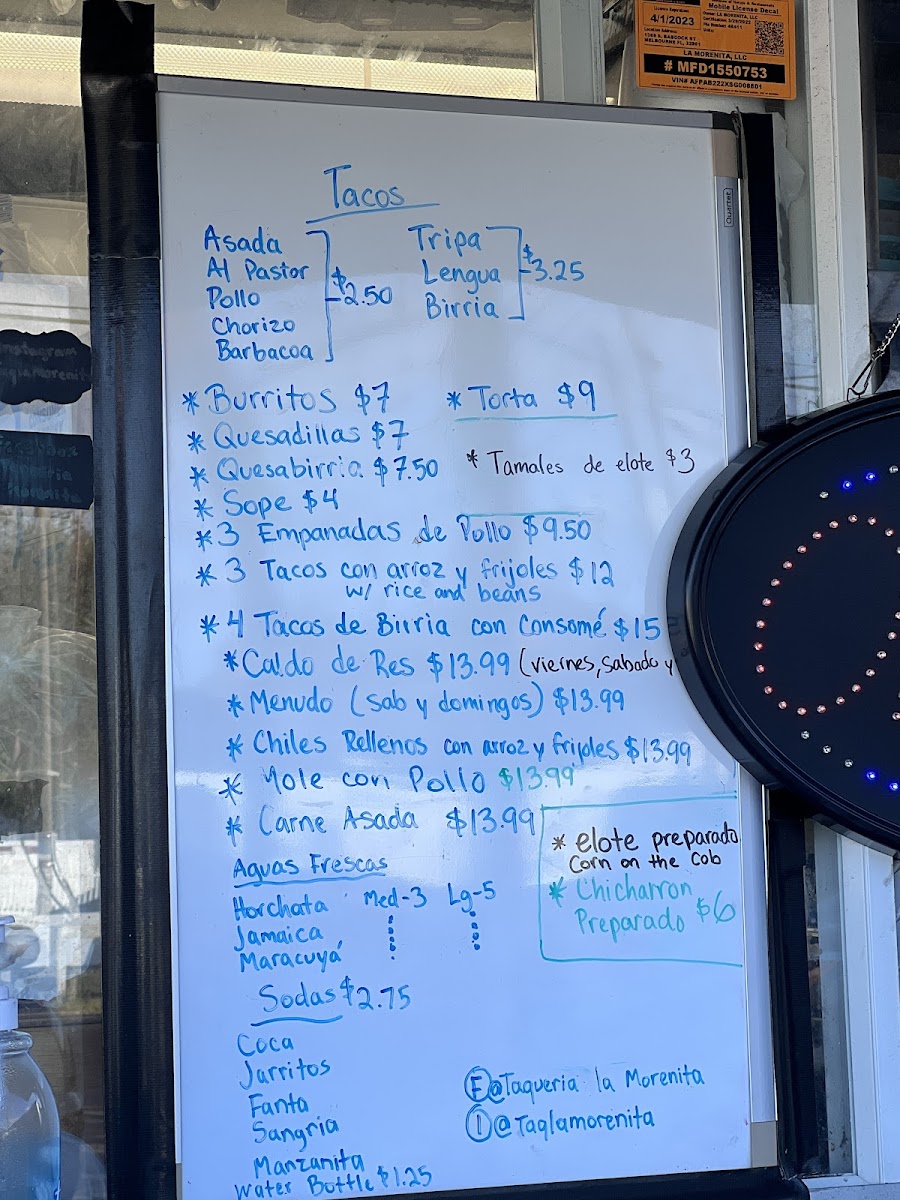 4/1/2023
Mobile License Decal
LA MORENITA, LLC
# MFD1550753
Quartet
Tacos
Asada
Al Pastor
Pollo
Chorizo
Barbacoa
$2.50
Tripa
Lengua
Birria
$3.25
* Burritos $7
* Torta $9
* Quesadillas $7
* Quesabirria $7.50
* Tamales de elote $3
* Sope $4
* 3 Empanadas de Pollo $9.50
* 3 Tacos con arroz y frijoles $12
w/ rice and beans
* 4 Tacos de Birria con Consomé $15
* Caldo de Res $13.99 (viernes, sabado y
* Menudo (sab y domingos) $13.99
* Chiles Rellenos con arroz y frijoles $13.99
* Mole con Pollo $13.99
* Carne Asada $13.99
* elote preparado
Corn on the Cob
* Chicharron
Preparado $6
Aguas Frescas
Horchata Med-3 Lg-5
Jamaica
Maracuyá
Sodas $2.75
Coca
Jarritos
Fanta
Sangria
Manzanita
Water Bottle $1.25
F @Taqueria la Morenita
I @Taqlamorenita